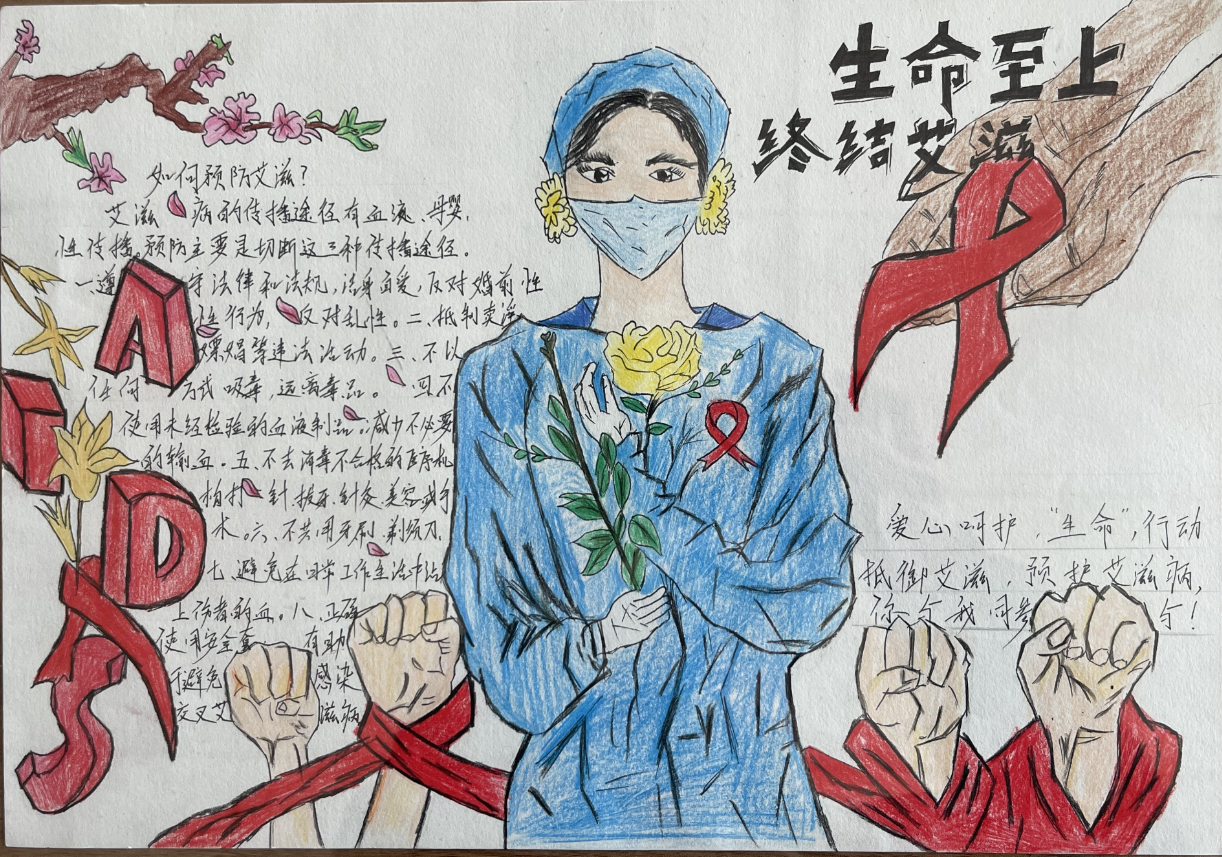 生命至上
终结艾滋
如何预防艾滋？
艾滋病的传播途径有血液、母婴、
性传播。预防主要是切断这三种传播途径。
一遵守法律和法规，洁身自爱，反对婚前性
性行为，反对乱性。二、抵制卖淫
嫖娼等违法活动。三、不以
任何方式吸毒，远离毒品。四不
使用未经检验的血液制品。减少不必要
的输血。五、不去消毒不合格的医疗机
构打针、拔牙、针灸、美容或手
术。六、不共用牙刷、剃须刀、
七、避免在日常工作生活中沾
上伤者的血。八、正确
使用安全套 有助
避免感染
交叉艾滋病
AIDS
爱心呵护，“生命”，行动
抵御艾滋，预护艾滋病，
你 我 同参 ！